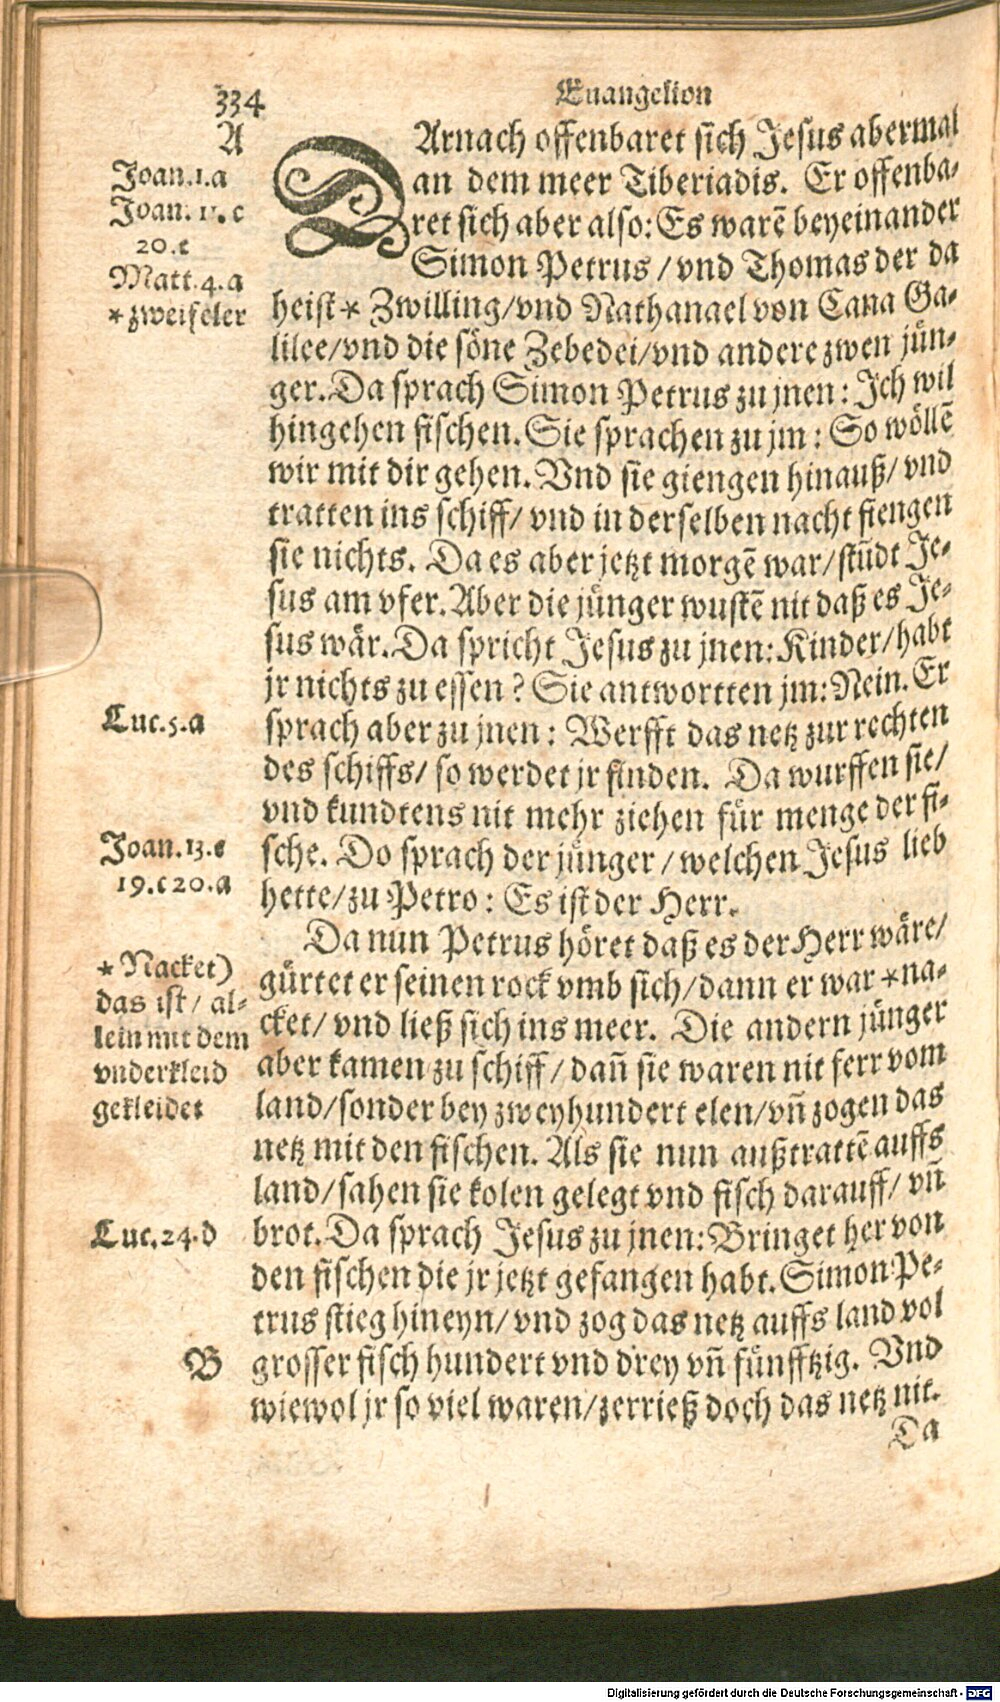 334
Euangelion
A
Joan.1.a
Joan.11.c
20.e
Matt.4.a
*zweifeler
DArnach offenbaret sich Jesus abermal
an dem meer Tiberiadis. Er offenba-
ret sich aber also: Es warē beyeinander
Simon Petrus / vnd Thomas der da
heist * Zwilling/vnd Nathanael von Cana Ga-
lilee/vnd die söne Zebedei/vnd andere zwen jün-
ger. Da sprach Simon Petrus zu jnen: Ich wil
hingehen fischen. Sie sprachen zu jm: So wöllē
wir mit dir gehen. Vnd sie giengen hinauß/ vnd
tratten ins schiff/ vnd in derselben nacht fiengen
sie nichts. Da es aber jetzt morgē war/ stůdt Je-
sus am vfer. Aber die jünger wustē nit daß es Je-
sus wär. Da spricht Jesus zu jnen: Kinder/habt
jr nichts zu essen? Sie antwortten jm: Nein. Er
Luc.5.a
sprach aber zu jnen: Werfft das netz zur rechten
des schiffs/ so werdet jr finden. Da wurffen sie/
vnd kundtens nit mehr ziehen für menge der fi-
Joan.13.e
19.c 20.a
sche. Do sprach der jünger / welchen Jesus lieb
hette/zu Petro: Es ist der Herr.
Da nun Petrus höret daß es der Herr wäre/
* Nacket)
das ist/ al-
lein mit dem
vnderkleid
gekleidet
gürtet er seinen rock vmb sich/dann er war *na-
cket/ vnd ließ sich ins meer. Die andern jünger
aber kamen zu schiff / dañ sie waren nit ferr vom
land/sonder bey zweyhundert elen/vñ zogen das
netz mit den fischen. Als sie nun außtrattē auffs
land/sahen sie kolen gelegt vnd fisch darauff/ vñ
Luc.24.d
brot. Da sprach Jesus zu jnen: Bringet her von
den fischen die jr jetzt gefangen habt. Simon Pe-
trus stieg hineyn/ vnd zog das netz auffs land vol
B
grosser fisch hundert vnd drey vñ fünfftzig. Vnd
wiewol jr so viel waren/zerrieß doch das netz nit.
Da
Digitalisierung gefördert durch die Deutsche Forschungsgemeinschaft - DFG